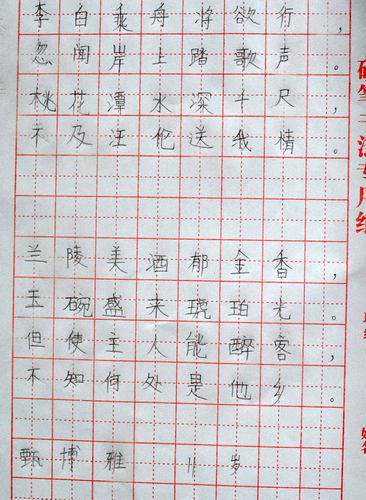 李白乘舟将欲行，
忽闻岸上踏歌声。
桃花潭水深千尺，
不及汪伦送我情。
兰陵美酒郁金香，
玉碗盛来琥珀光。
但使主人能醉客，
不知何处是他乡。
甄博雅 11岁